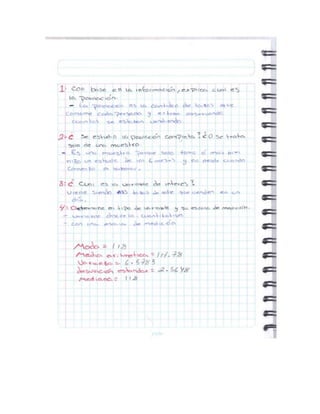 1: Con base en la información, explica cual es
la población.
- La población es la cantidad de botes que
consume cada persona y estan observando
cuantos se estaban vendiendo.
2: ¿ Se estudio la población completa? ¿O se trata
solo de una muestra
- Es una muestra porque solo
hizo un estudio de los 6 meses y
3: ¿ Cual es la variable de interes?
Viene siendo los botes de que venden en un
dia.
4: Determine el tipo de variable y su escala de medición.
- variable discreta cuantitativa
- con una escala de medición
Moda = 118
Media aritmetica = 117.78
Varianza = 6.5783
desviación estandar = 2.5648
Mediana = 118